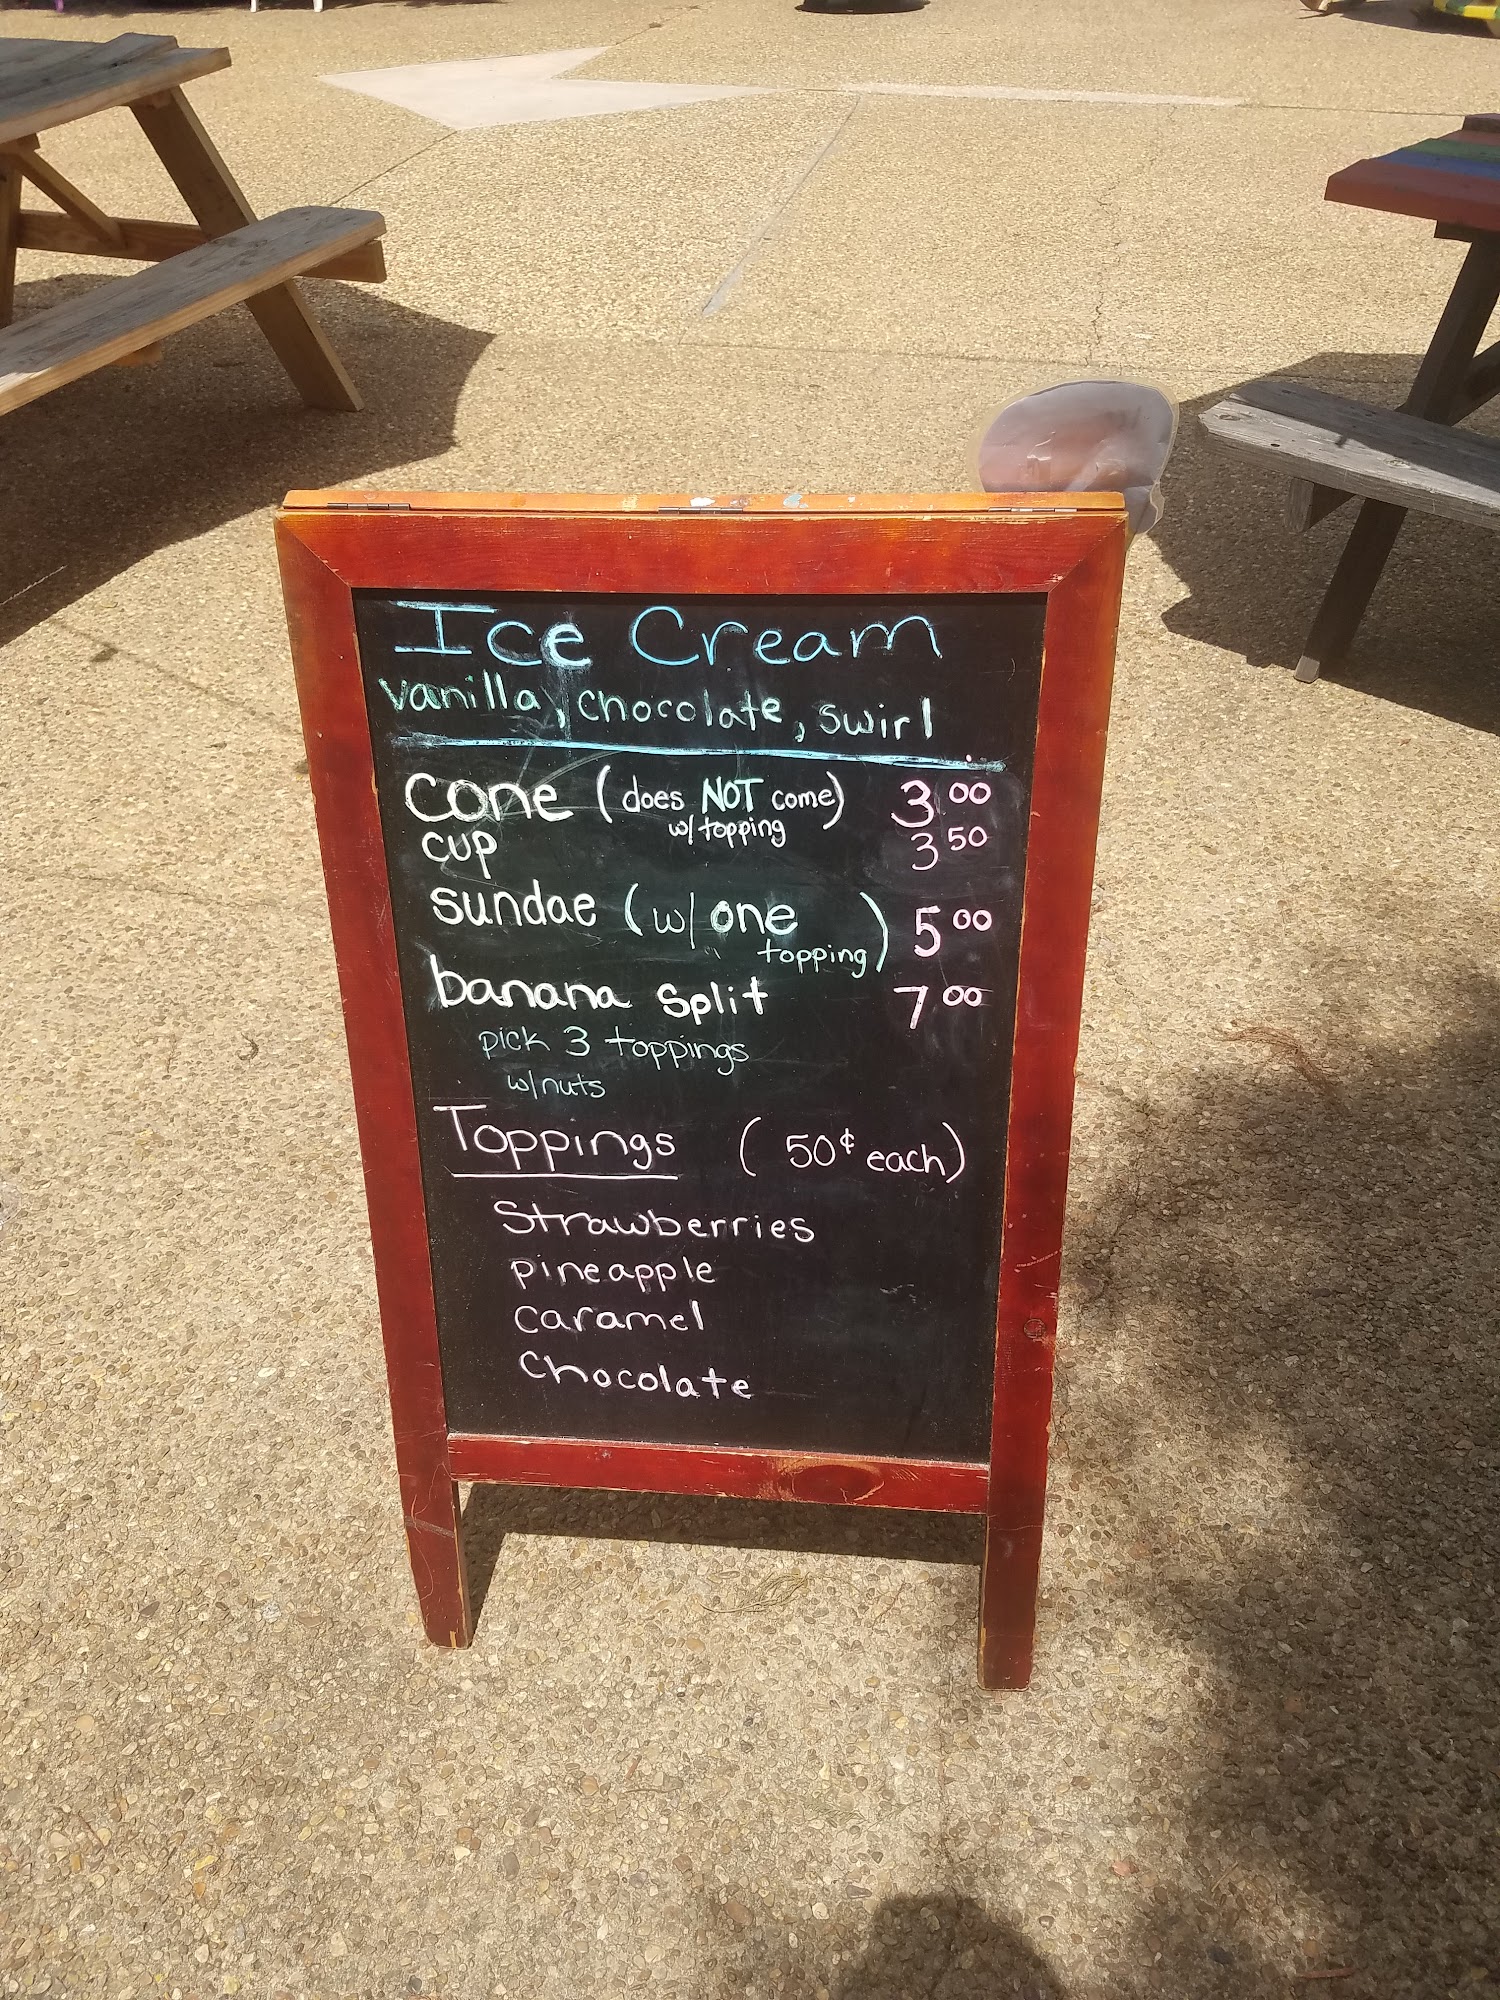 Ice Cream
vanilla, chocolate, swirl
cone (does NOT come) 3 00
w/topping
cup 3 50
sundae (w/ one topping) 5 00
banana split 7 00
pick 3 toppings
w/nuts
Toppings (50¢ each)
Strawberries
pineapple
caramel
chocolate